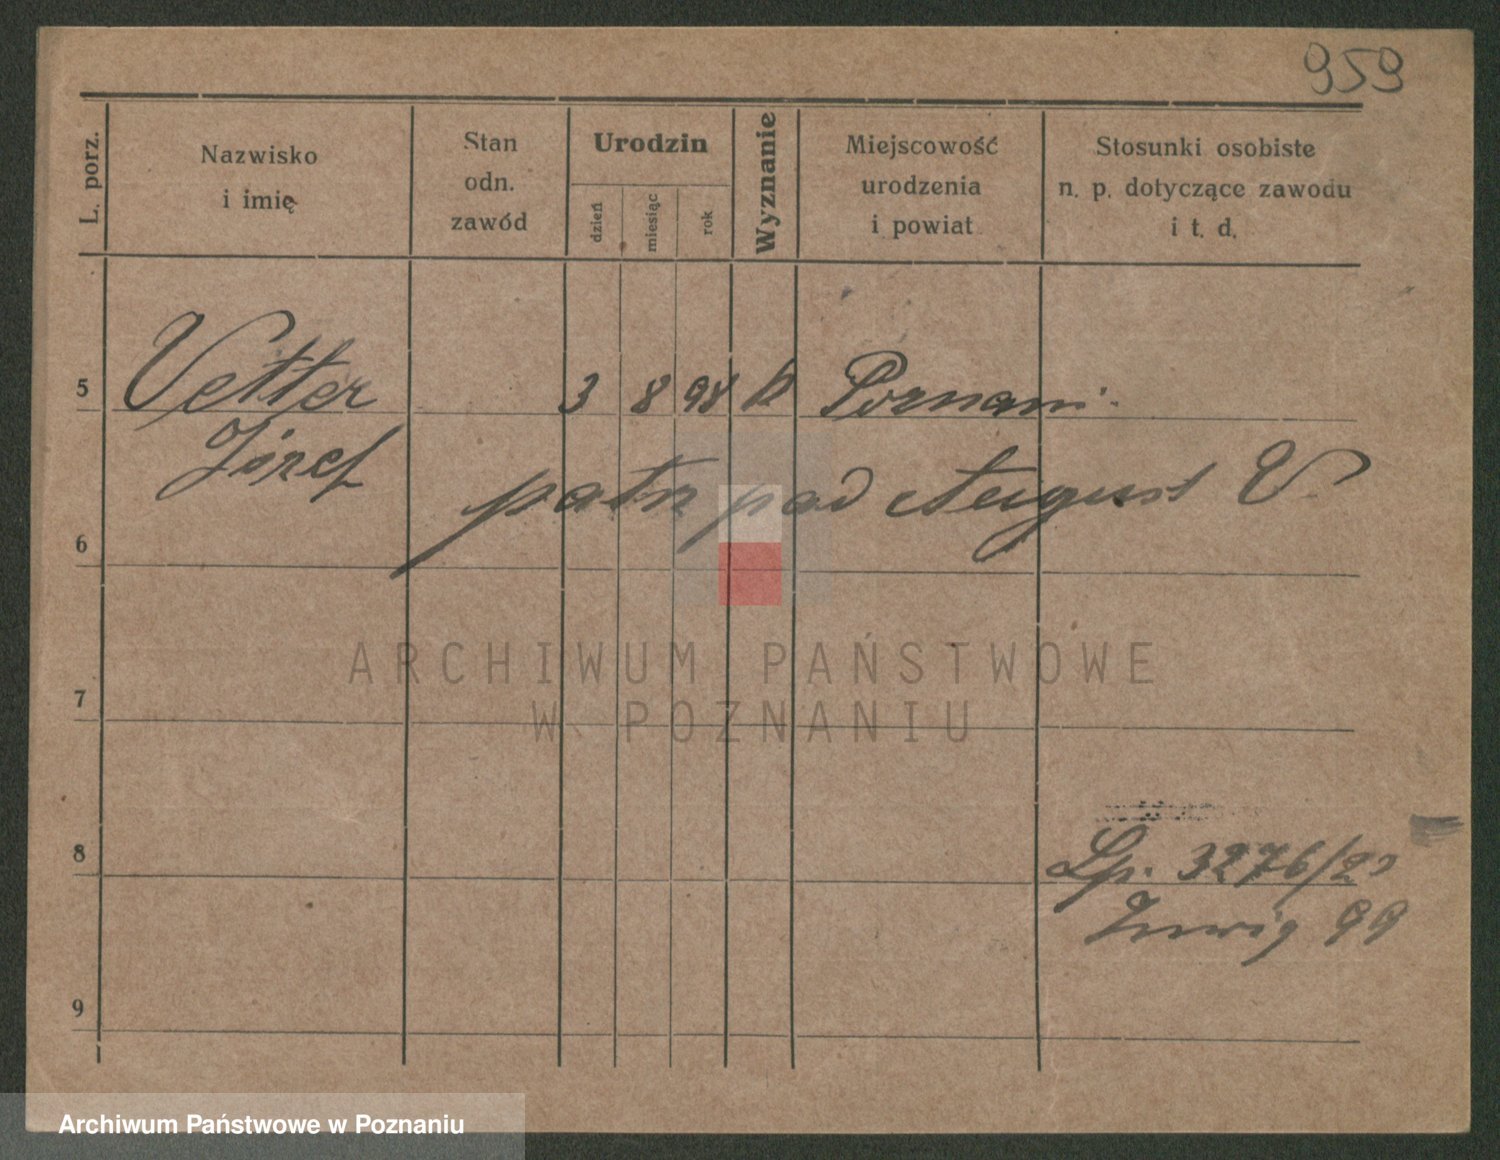 959
L. porz.
Nazwisko
i imię
Stan
odn.
zawód
Urodzin
dzień
miesiąc
rok
Wyznanie
Miejscowość
urodzenia
i powiat
Stosunki osobiste
n. p. dotyczące zawodu
i t. d.
5 Vetter 3 8 98 k Poznań
Józef
patrz pod August V.
6
ARCHIWUM PAŃSTWOWE
W POZNANIU
7
8 Lp. 3276/
99
9
Archiwum Państwowe w Poznaniu